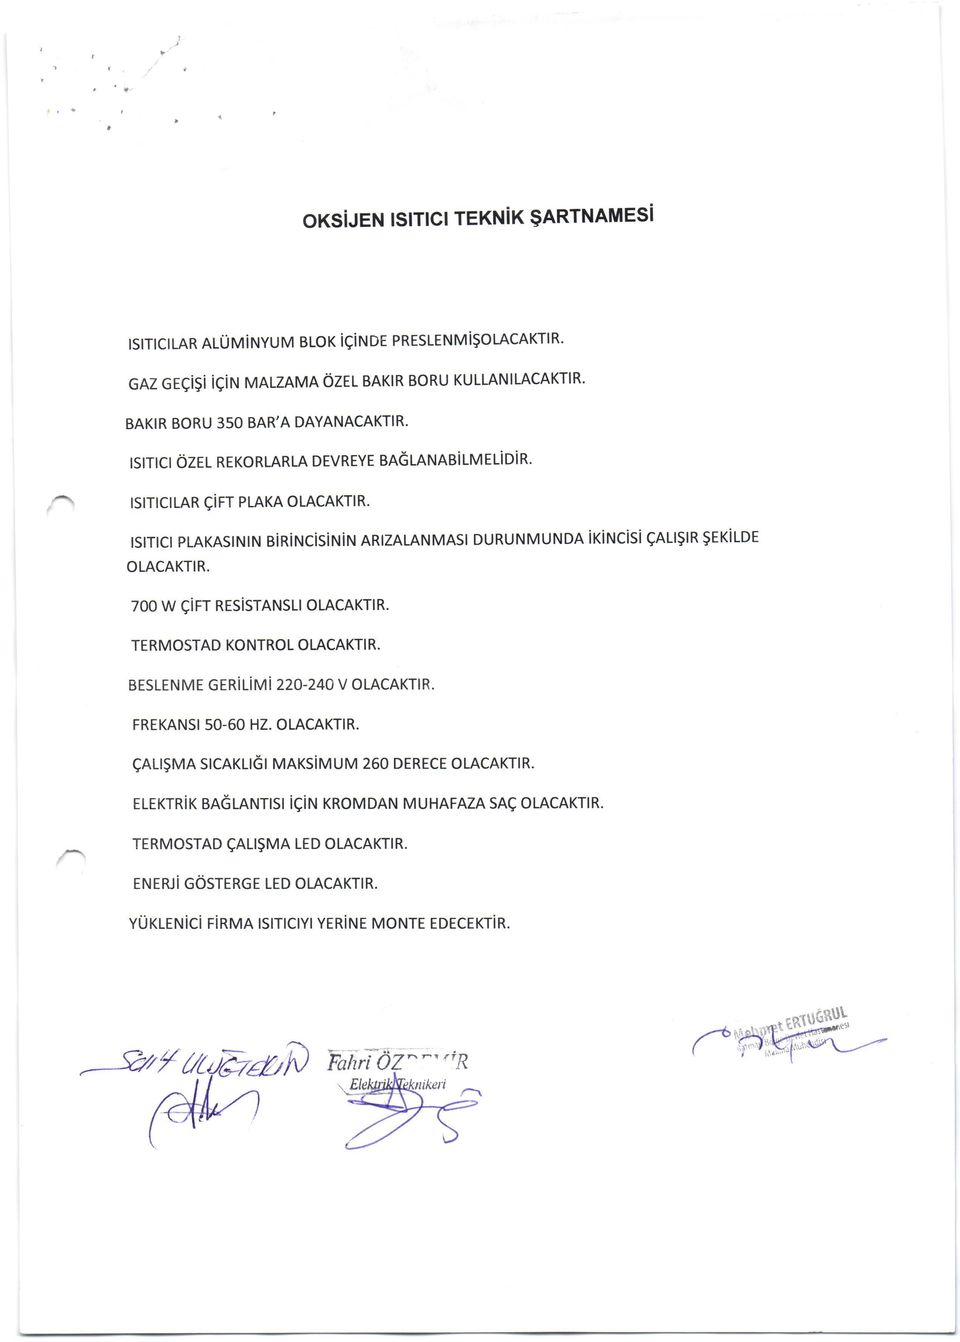 OKSİJEN ISITICI TEKNİK ŞARTNAMESİ
ISITICILAR ALÜMİNYUM BLOK İÇİNDE PRESLENMİŞOLACAKTIR.
GAZ GEÇİŞİ İÇİN MALZAMA ÖZEL BAKIR BORU KULLANILACAKTIR.
BAKIR BORU 350 BAR'A DAYANACAKTIR.
ISITICI ÖZEL REKORLARLA DEVREYE BAĞLANABİLMELİDİR.
ISITICILAR ÇİFT PLAKA OLACAKTIR.
ISITICI PLAKASININ BİRİNCİSİNİN ARIZALANMASI DURUNMUNDA İKİNCİSİ ÇALIŞIR ŞEKİLDE
OLACAKTIR.
700 W ÇİFT RESİSTANSLI OLACAKTIR.
TERMOSTAD KONTROL OLACAKTIR.
BESLENME GERİLİMİ 220-240 V OLACAKTIR.
FREKANSI 50-60 HZ. OLACAKTIR.
ÇALIŞMA SICAKLIĞI MAKSİMUM 260 DERECE OLACAKTIR.
ELEKTRİK BAĞLANTISI İÇİN KROMDAN MUHAFAZA SAÇ OLACAKTIR.
TERMOSTAD ÇALIŞMA LED OLACAKTIR.
ENERJİ GÖSTERGE LED OLACAKTIR.
YÜKLENİCİ FİRMA ISITICIYI YERİNE MONTE EDECEKTİR.
Fahri
Elektrik Teknikeri
Mehmet ERTUĞRUL